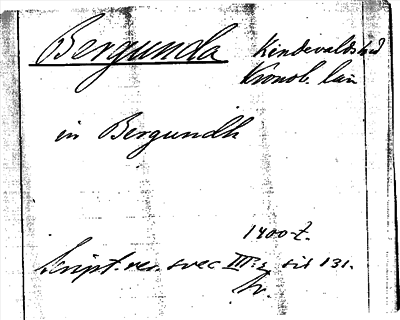 Bergunda Kinnevalds hd
Kronob. län
in Bergundh
1400-t.
Script. rer. svec III:2 sid 131.